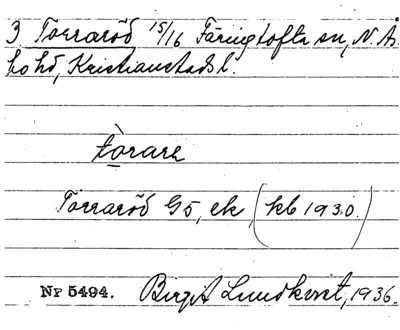 3 Torraröd 15/16 Färingtofta sn, N. Ås-
bo hd, Kristianstads l.
tòrarö
Torraröd G5, ek, (kb 1930.)
Nr 5494. Birgit Lundkvist, 1936.